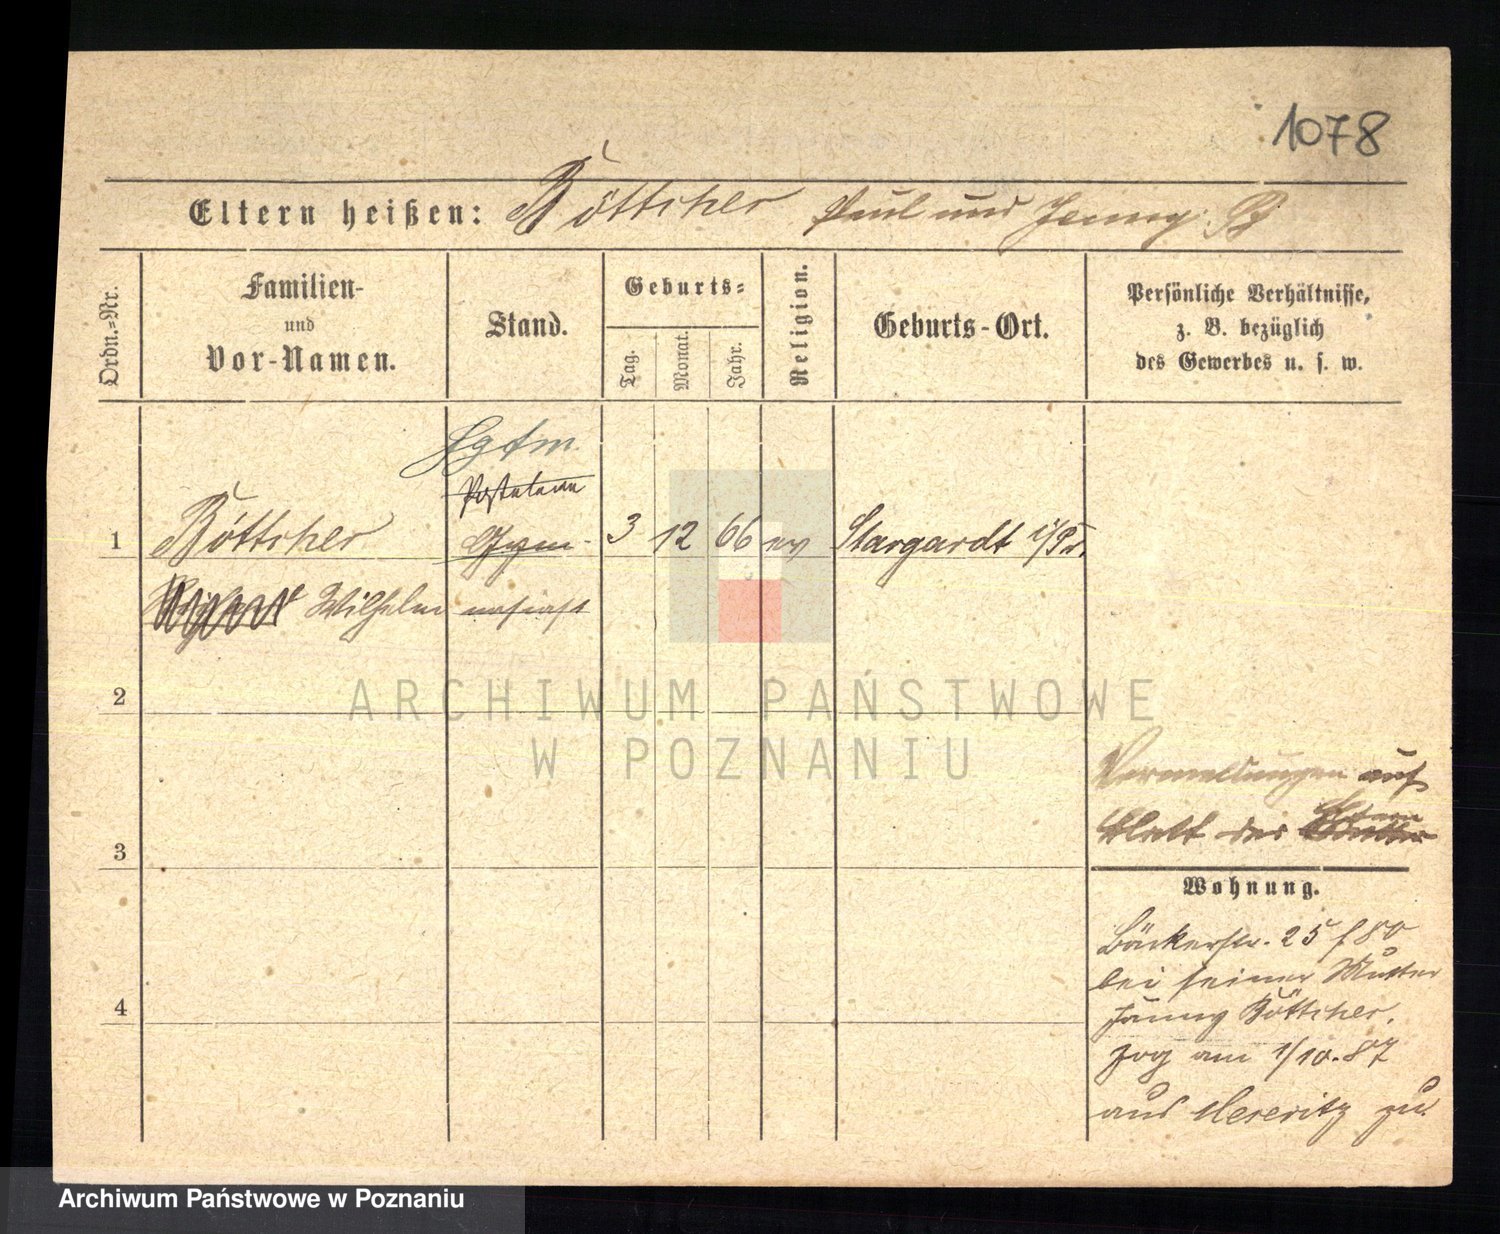 1078
Eltern heißen: Böttcher Paul und Jenny
Ordn.=Nr.
Familien-
und
Vor-Namen.
Stand.
Geburts=
Tag.
Monat.
Jahr.
Religion.
Geburts-Ort.
Persönliche Verhältnisse,
z. B. bezüglich
des Gewerbes u. s. w.
1 Böttcher Gym- 3 12 66 ev Stargardt i/Pr.
Wilhelm nasiast
2
3
4
auf
Blatt der
Wohnung.
Bäckerstr. 25 f 80
bei seiner Mutter
Jenny Böttcher.
zog am 1/10.87
aus Meseritz zu.
ARCHIWUM PAŃSTWOWE
W POZNANIU
Archiwum Państwowe w Poznaniu